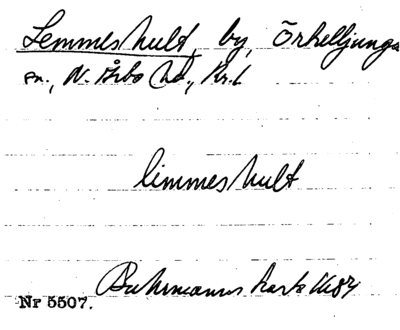 Lemmeshult, by, Örkelljunga
sn., N. Åsbo hd., Kr.l
limmeshult
Buhrmanns karta 1684
Nr 5507.